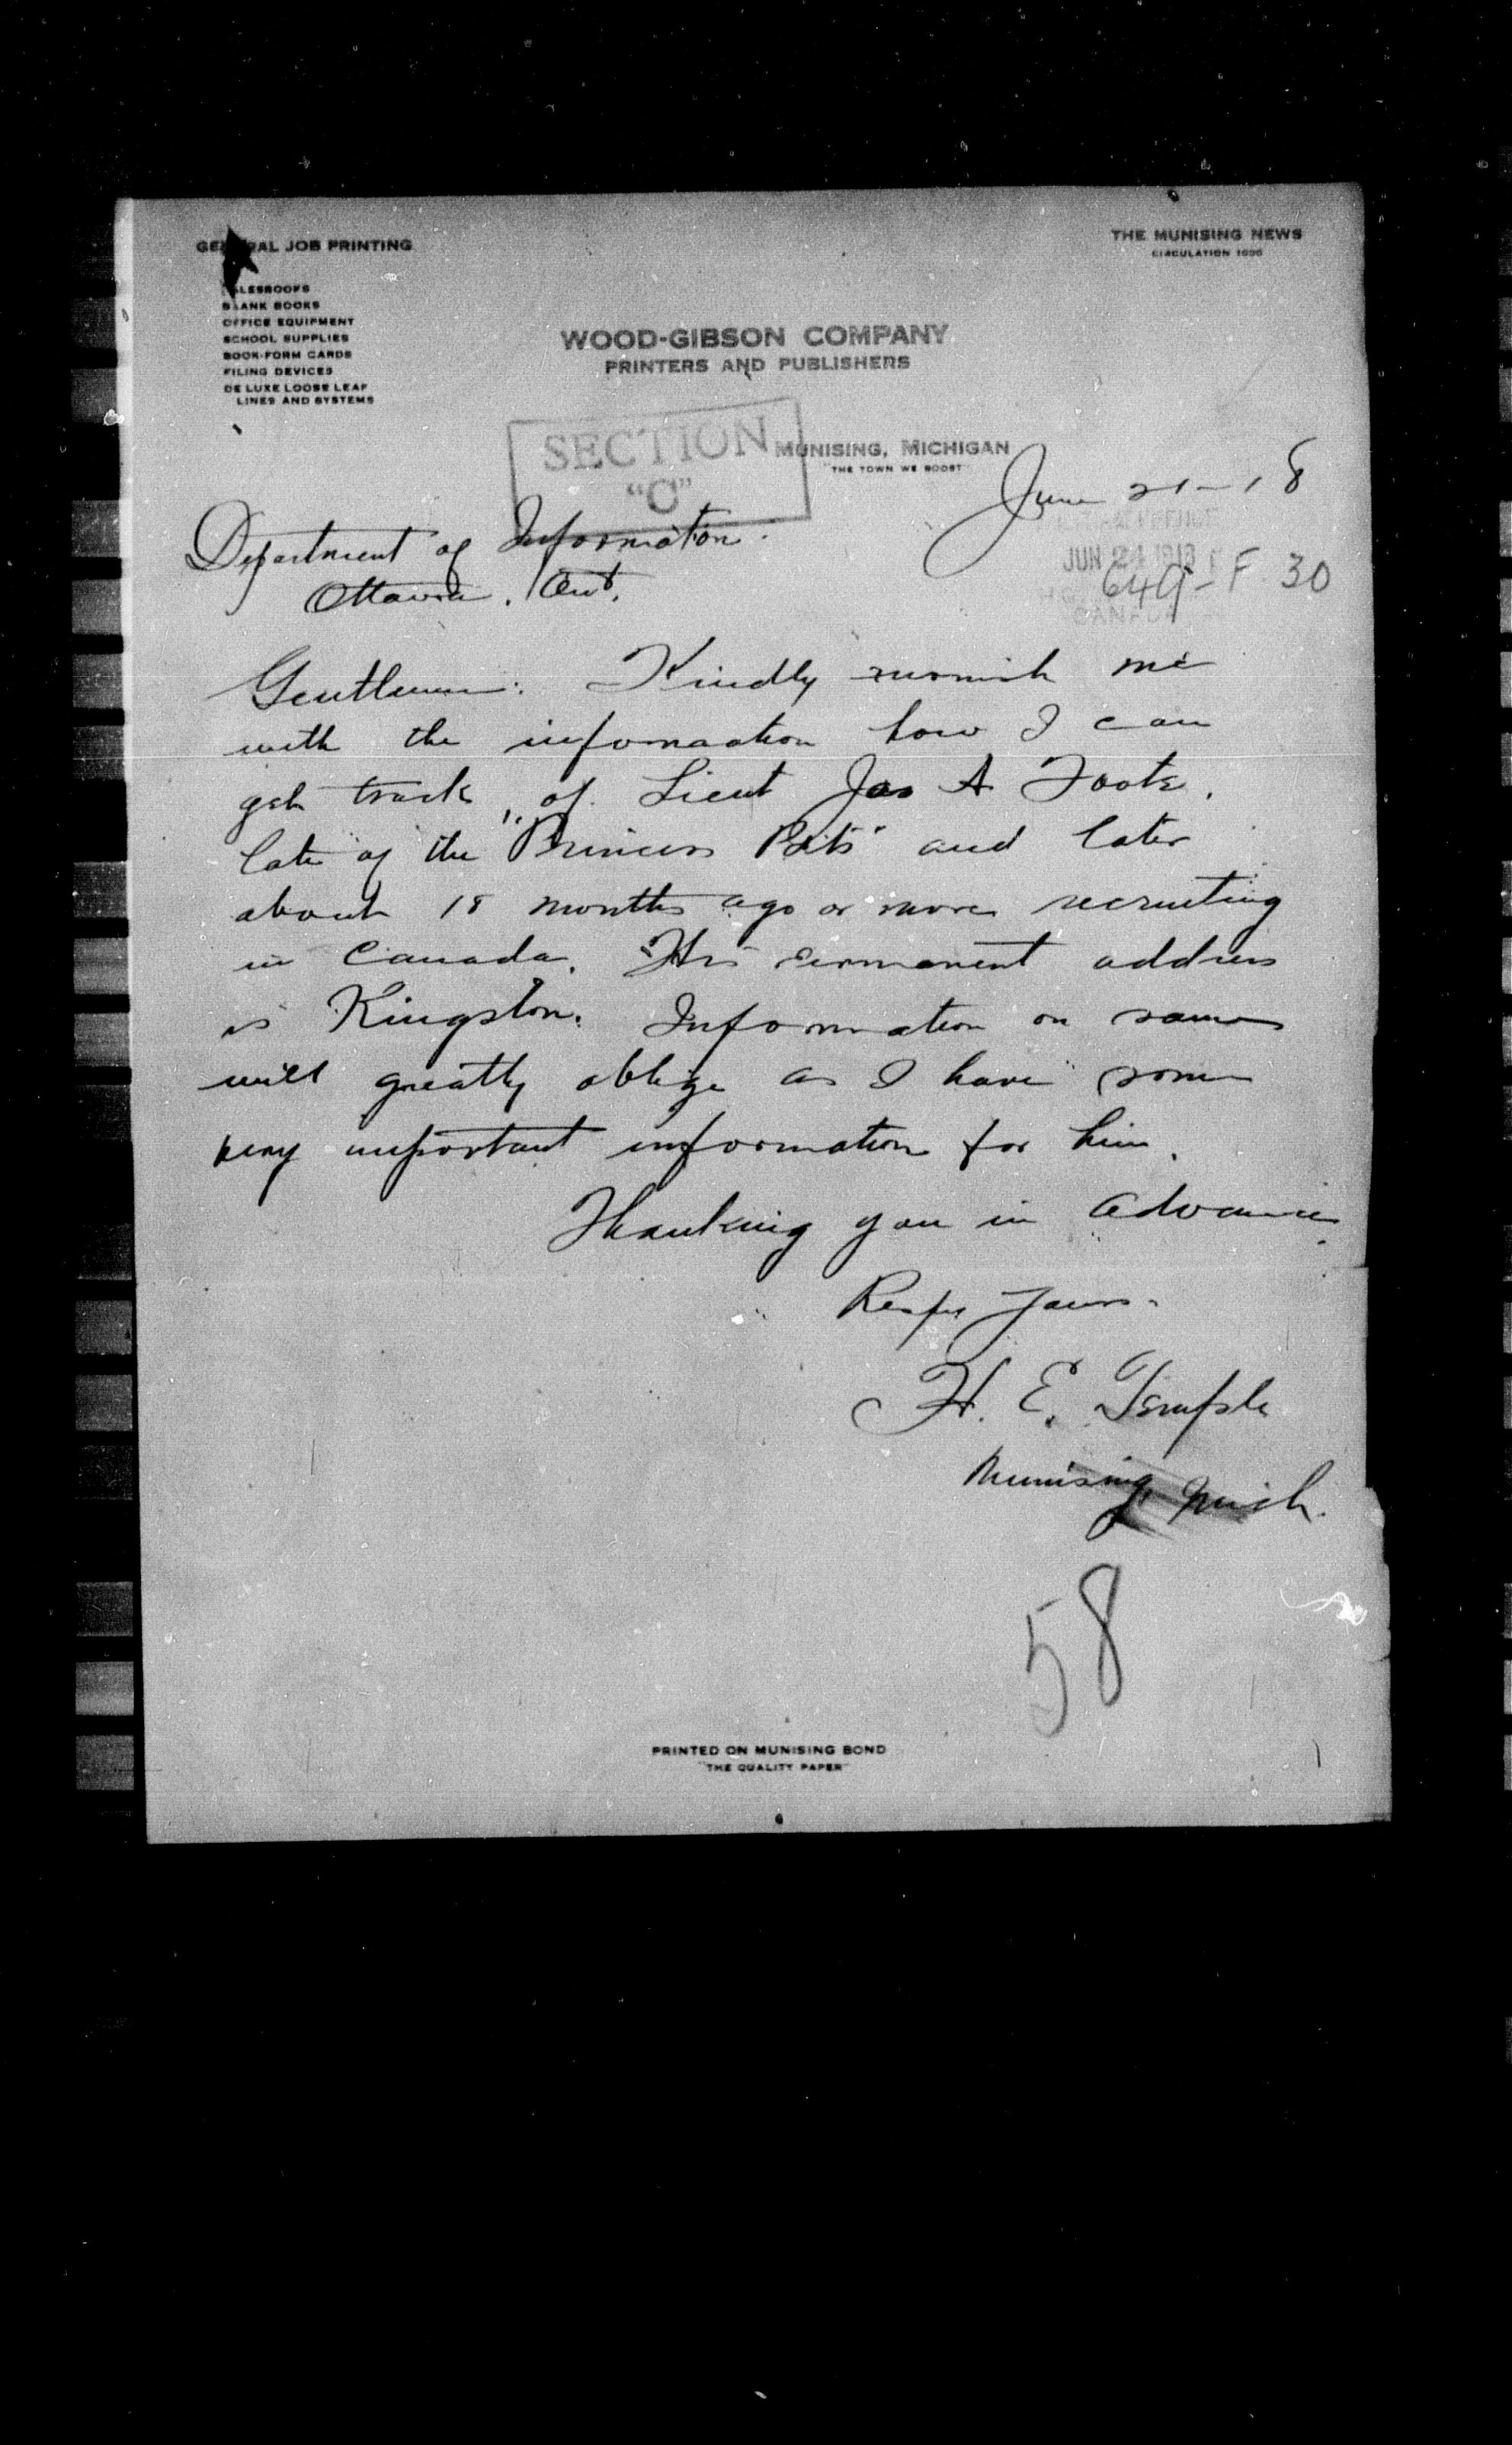 GENERAL JOB PRINTING
THE MUNISING NEWS
CIRCULATION
SALESBOOKS
BLANK BOOKS
OFFICE EQUIPMENT
SCHOOL SUPPLIES
BOOK-FORM CARDS
FILING DEVICES
DE LUXE LOOSE LEAF
LINES AND SYSTEMS
WOOD-GIBSON COMPANY
PRINTERS AND PUBLISHERS
SECTION
"C"
MUNISING, MICHIGAN
"THE TOWN WE BOOST"
June 21-18
Department of Information.
Ottawa. Ont.
JUN 24 1918
649-F 30
CANADA
Gentlemen: Kindly furnish me
with the infomaation how I can
get track of Lieut Jas A Foote.
late of the "Princess Pats" and later
about 18 months ago or more recruiting
in Canada. His permanent address
is Kingston. Information on same
will greatly oblige as I have some
very important information for him.
Thanking you in advance
Respt Yours.
H. E. Temple
Munising, Mich.
58
PRINTED ON MUNISING BOND
"THE QUALITY PAPER"